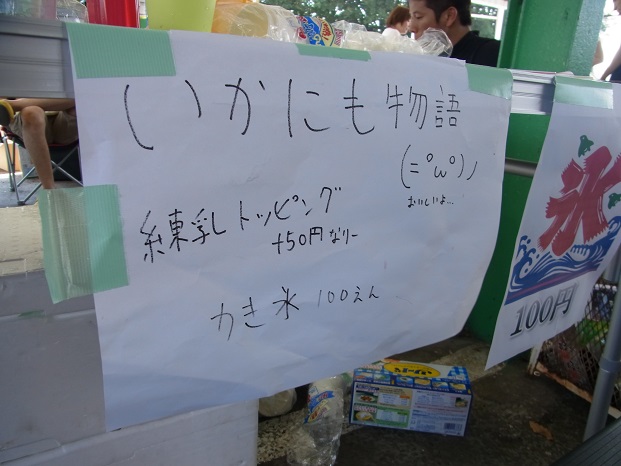 いかにも物語
(=゚ω゚)ノ
おいしいよ…
練乳トッピング
+50円なりー
かき氷 100えん
氷
100円